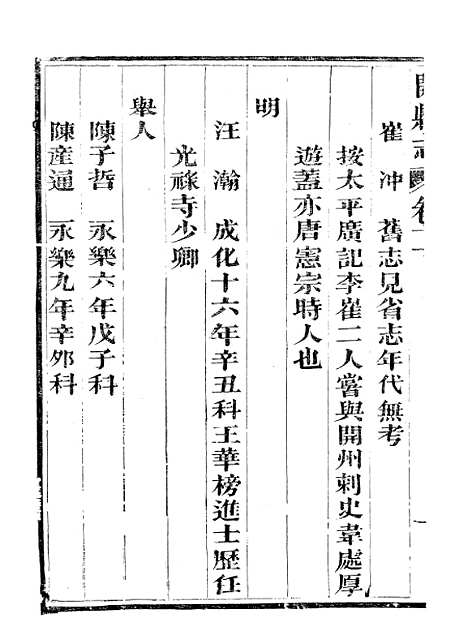 開縣志 卷二
崔 冲 舊志見省志年代無考
按太平廣記李崔二人嘗與開州刺史韋處厚
遊蓋亦唐憲宗時人也
明
汪 瀚 成化十六年辛丑科王華榜進士歷任
光祿寺少卿
舉人
陳子哲 永樂六年戊子科
陳產通 永樂九年辛卯科